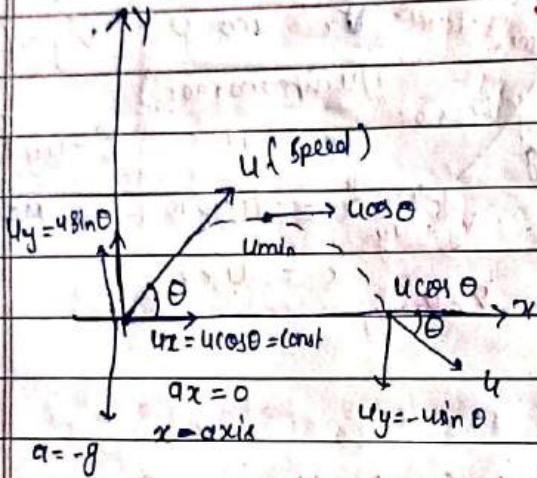 y
u ( speed )
uy = usinθ
ucosθ
umin
θ
ucosθ
x
θ
ux = ucosθ = const
u
ax = 0
uy = -usinθ
x-axis
a = -g